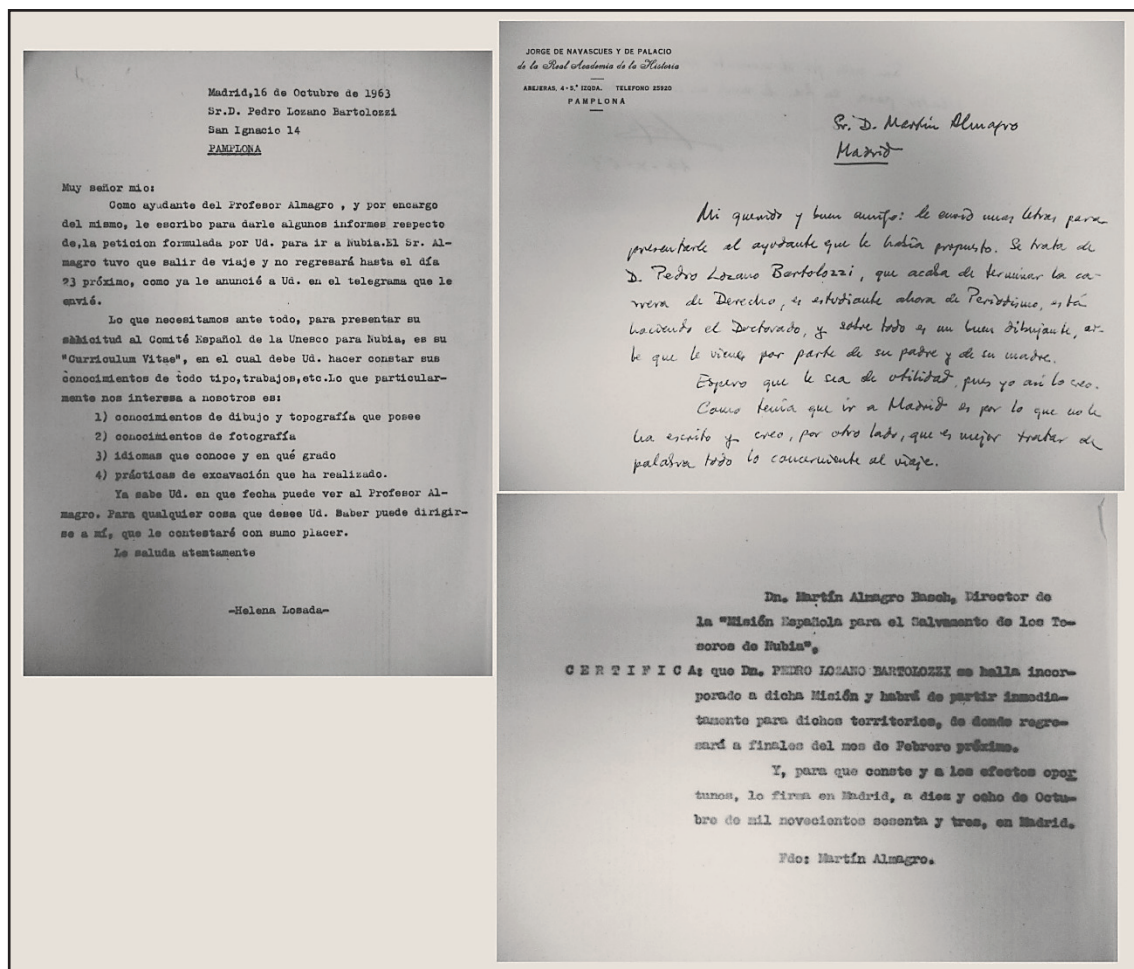 Madrid,16 de Octubre de 1963
Sr.D. Pedro Lozano Bartolozzi
San Ignacio 14
PAMPLONA
Muy señor mio:
Como ayudante del Profesor Almagro , y por encargo
del mismo, le escribo para darle algunos informes respecto
de,la peticion formulada por Ud. para ir a Nubia.El Sr. Al-
magro tuvo que salir de viaje y no regresará hasta el día
23 próximo, como ya le anunció a Ud. en el telegrama que le
envió.
Lo que necesitamos ante todo, para presentar su
solicitud al Comité Español de la Unesco para Nubia, es su
"Curriculum Vitae", en el cual debe Ud. hacer constar sus
conocimientos de todo tipo,trabajos,etc.Lo que particular-
mente nos interesa a nosotros es:
1) conocimientos de dibujo y topografía que posee
2) conocimientos de fotografía
3) idiomas que conoce y en qué grado
4) prácticas de excavación que ha realizado.
Ya sabe Ud. en que fecha puede ver al Profesor Al-
magro. Para qualquier cosa que desee Ud. Saber puede dirigir-
se a mí, que le contestaré con sumo placer.
Le saluda atentamente
-Helena Losada-
JORGE DE NAVASCUES Y DE PALACIO
de la Real Academia de la Historia
ABEJERAS, 4 - 5.º IZQDA. TELEFONO 25920
PAMPLONA
Sr. D. Martín Almagro
Madrid
Mi querido y buen amigo: le envío unas letras para
presentarle al ayudante que le había propuesto. Se trata de
D. Pedro Lozano Bartolozzi, que acaba de terminar la ca-
rrera de Derecho, es estudiante ahora de Periodismo, está
haciendo el Doctorado, y sobre todo es un buen dibujante, ar-
te que le viene por parte de su padre y de su madre.
Espero que le sea de utilidad, pues yo así lo creo.
Como tenía que ir a Madrid es por lo que no le
ha escrito y creo, por otro lado, que es mejor tratar de
palabra todo lo concerniente al viaje.
Dn. Martín Almagro Basch, Director de
la "Misión Española para el Salvamento de los Te-
soros de Nubia",
C E R T I F I C A: que Dn. PEDRO LOZANO BARTOLOZZI se halla incor-
porado a dicha Misión y habrá de partir inmedia-
tamente para dichos territorios, de donde regre-
sará a finales del mes de Febrero próximo.
Y, para que conste y a los efectos opor
tunos, lo firma en Madrid, a diez y ocho de Octu-
bre de mil novecientos sesenta y tres, en Madrid.
Fdo: Martín Almagro.